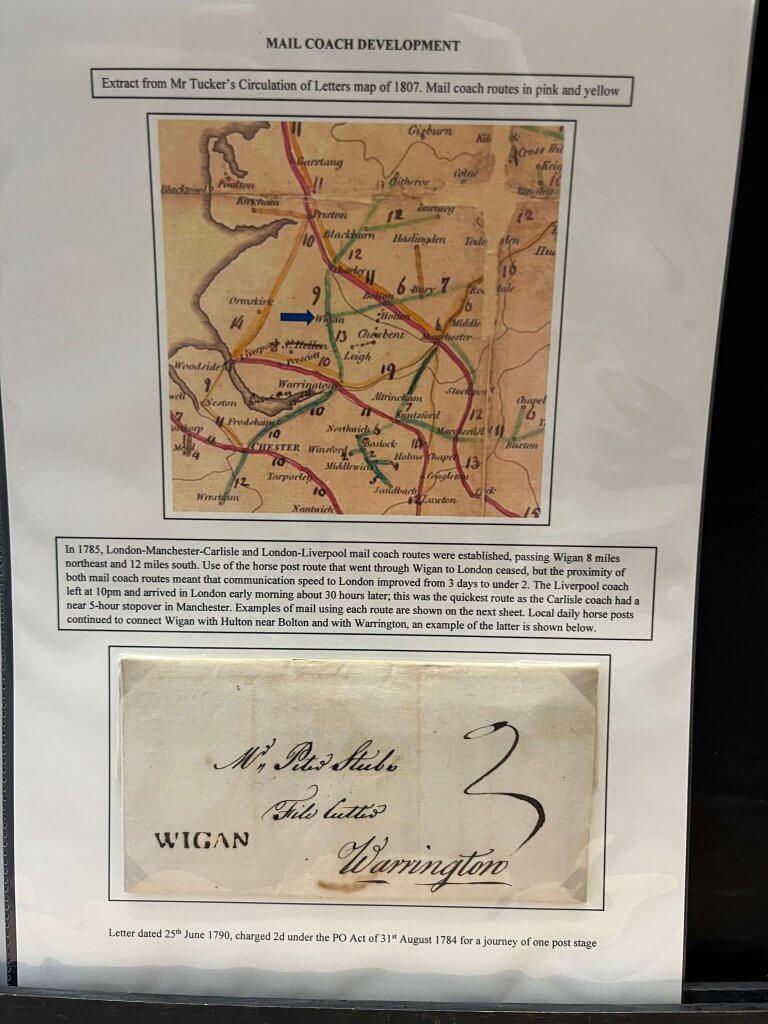 MAIL COACH DEVELOPMENT
Extract from Mr Tucker's Circulation of Letters map of 1807. Mail coach routes in pink and yellow
11 Gisburn
Garstang Cross
Blackpool Poulton 11 Clitheroe Colne Bingley
Kirkham Preston 12 Burnley 12
10 Blackburn Haslingden
12
Chorley 11 16
9 6 7
Ormskirk Bolton Bury
Wigan Hulton 6
14 13 Chowbent 8 Middle
Liverpool St Hellen Leigh Manchester
Woodside Prescott 10 19
Warrington Altrincham Stockport
9 Neston 10 11 7 12 Chapel 6
Frodsham Knutsford Macclesfield 11
7 Northwich 6 Buxton
Mold 4 4 CHESTER Winsford 2 Bostock 14 Holms Chapel
10 Middlewich 13
Tarporley 10 5 Congleton
12 Sandbach Leek
Wrexham 10 12 Lawton 15
Nantwich
In 1785, London-Manchester-Carlisle and London-Liverpool mail coach routes were established, passing Wigan 8 miles
northeast and 12 miles south. Use of the horse post route that went through Wigan to London ceased, but the proximity of
both mail coach routes meant that communication speed to London improved from 3 days to under 2. The Liverpool coach
left at 10pm and arrived in London early morning about 30 hours later; this was the quickest route as the Carlisle coach had a
near 5-hour stopover in Manchester. Examples of mail using each route are shown on the next sheet. Local daily horse posts
continued to connect Wigan with Hulton near Bolton and with Warrington, an example of the latter is shown below.
Mr Peter Stubs
File Cutter
WIGAN
Warrington
Letter dated 25th June 1790, charged 2d under the PO Act of 31st August 1784 for a journey of one post stage